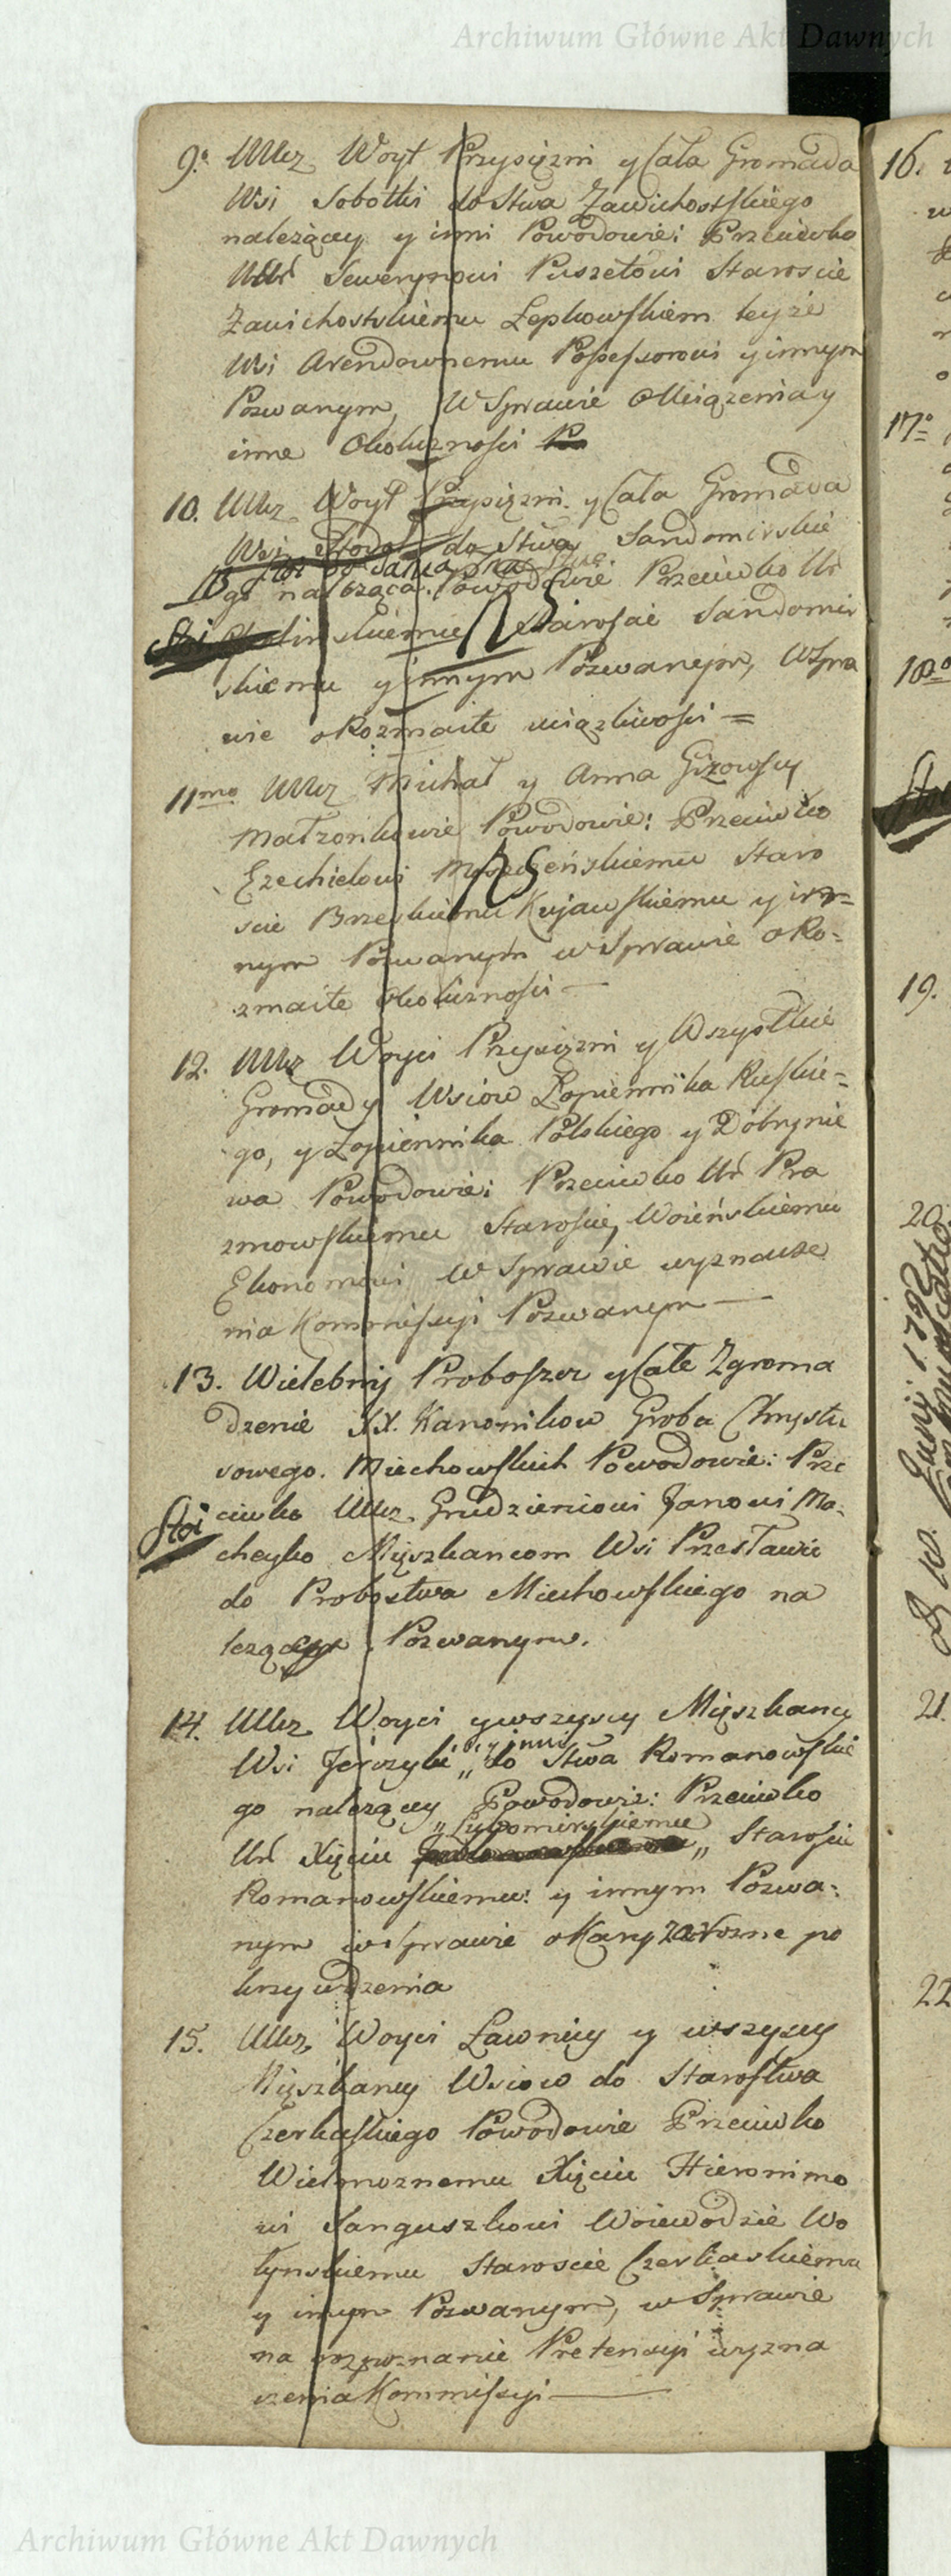 Archiwum Główne Akt Dawnych
9º Uttcz Woyt Przysięzni y Cała Gromada
Wsi Sobotki do Stwa Zawichostskiego
nalezący y inni Powodowie: Przeciwko
Ur Sewerynowi Puszetowi Staroscie
Zawichostskiemu Łepkowskiem teyże
Wsi Arendownemu Possessorowi y innym
Pozwanym, W Sprawie o Uciązenia y
inne Okoliczności
10. Uttcz Woyt Przysięzni y Cała Gromada
Wsi do Stwa Sandomirskie
go naleząca Powodowie Przeciwko Ur
skiemu Starosćie Sandomir
skiemu y innym Pozwanym, W Spra
wie o Rozmaite uciązliwości =
11mo Uttcz Michał y Anna Gizowscy
Małzonkowie Powodowie: Przeciwko
Ezechielowi Staro
scie Brzeskiemu Kujawskiemu y in=
nym Pozwanym w Sprawie o Ro=
zmaite Okoliczności —
12. Uttcz Woyci Przysięzni y Wszystkie
Gromady Wsiow Łopiennika Ruskie=
go, y Łopiennika Polskiego y Dobrynie
wa Powodowie: Przeciwko Ur Pra
zmowskiemu Starosćie, Woieńskiemu
Ekonomowi W Sprawie wyznacze
nia Kommissyi Pozwanym —
13. Wielebny Proboszcz y Całe Zgroma
dzenie XX. Kanonikow Grobu Chrystu
sowego. Miechowskich Powodowie: Prze
Stoi ciwko Uttcz. Grudzieniowi Janowi Ma=
cheyko Mięszkancom Wsi Przesławic
do Probostwa Miechowskiego na
lezący Pozwanym.
14. Uttcz Woyci y wszyscy Mięszkancy
Wsi Jerczyki „ y inni do Stwa Romanowskie
go nalezący Powodowie: Przeciwko
„ Lubomirskiemu
Ur Xięciu „ Starosćie
Romanowskiemu: y innym Pozwa=
nym w Sprawie o Kary za Rozne po
krzywdzenia
15. Uttcz Woyci Ławnicy y wszyscy
Mięszkancy Wsiow do Starostwa
Czerkaskiego Powodowie Przeciwko
Wielmoznemu Xięciu Hieronimo
wi Sanguszkowi Woiewodzie Wo
łynskiemu Staroscie Czerkaskiemu
y innym Pozwanym, w Sprawie
na rozpoznanie Pretensyi wyzna
czenia Kommissyi —
16.
17º
18º
19.
20.
21.
22
Archiwum Główne Akt Dawnych